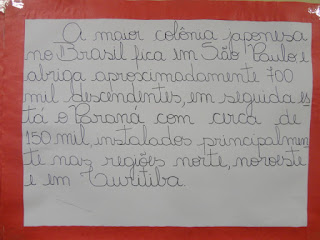 A maior colônia japonesa
no Brasil fica em São Paulo e
abriga aproximadamente 700
mil descendentes, em seguida es
tá o Paraná com cerca de
150 mil, instalados principalmen
te nas regiões norte, noroeste
e em Curitiba.